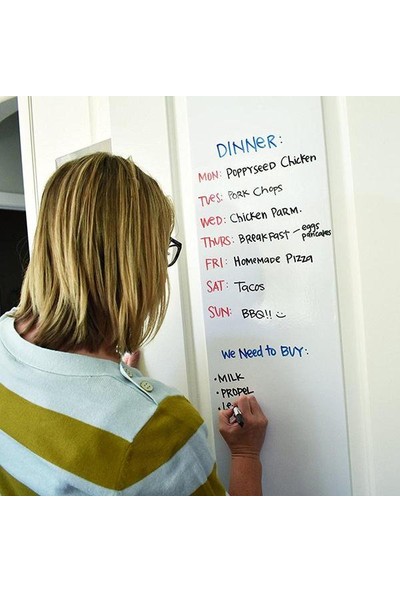 DINNER:
MON: POPPYSEED Chicken
TUES: PORK Chops
WED: Chicken PARM.
THURS: BREAKFAST – eggs
pancakes
FRI: Homemade Pizza
SAT: Tacos
SUN: BBQ!!
We Need to BUY:
• MILK
• PROPEL